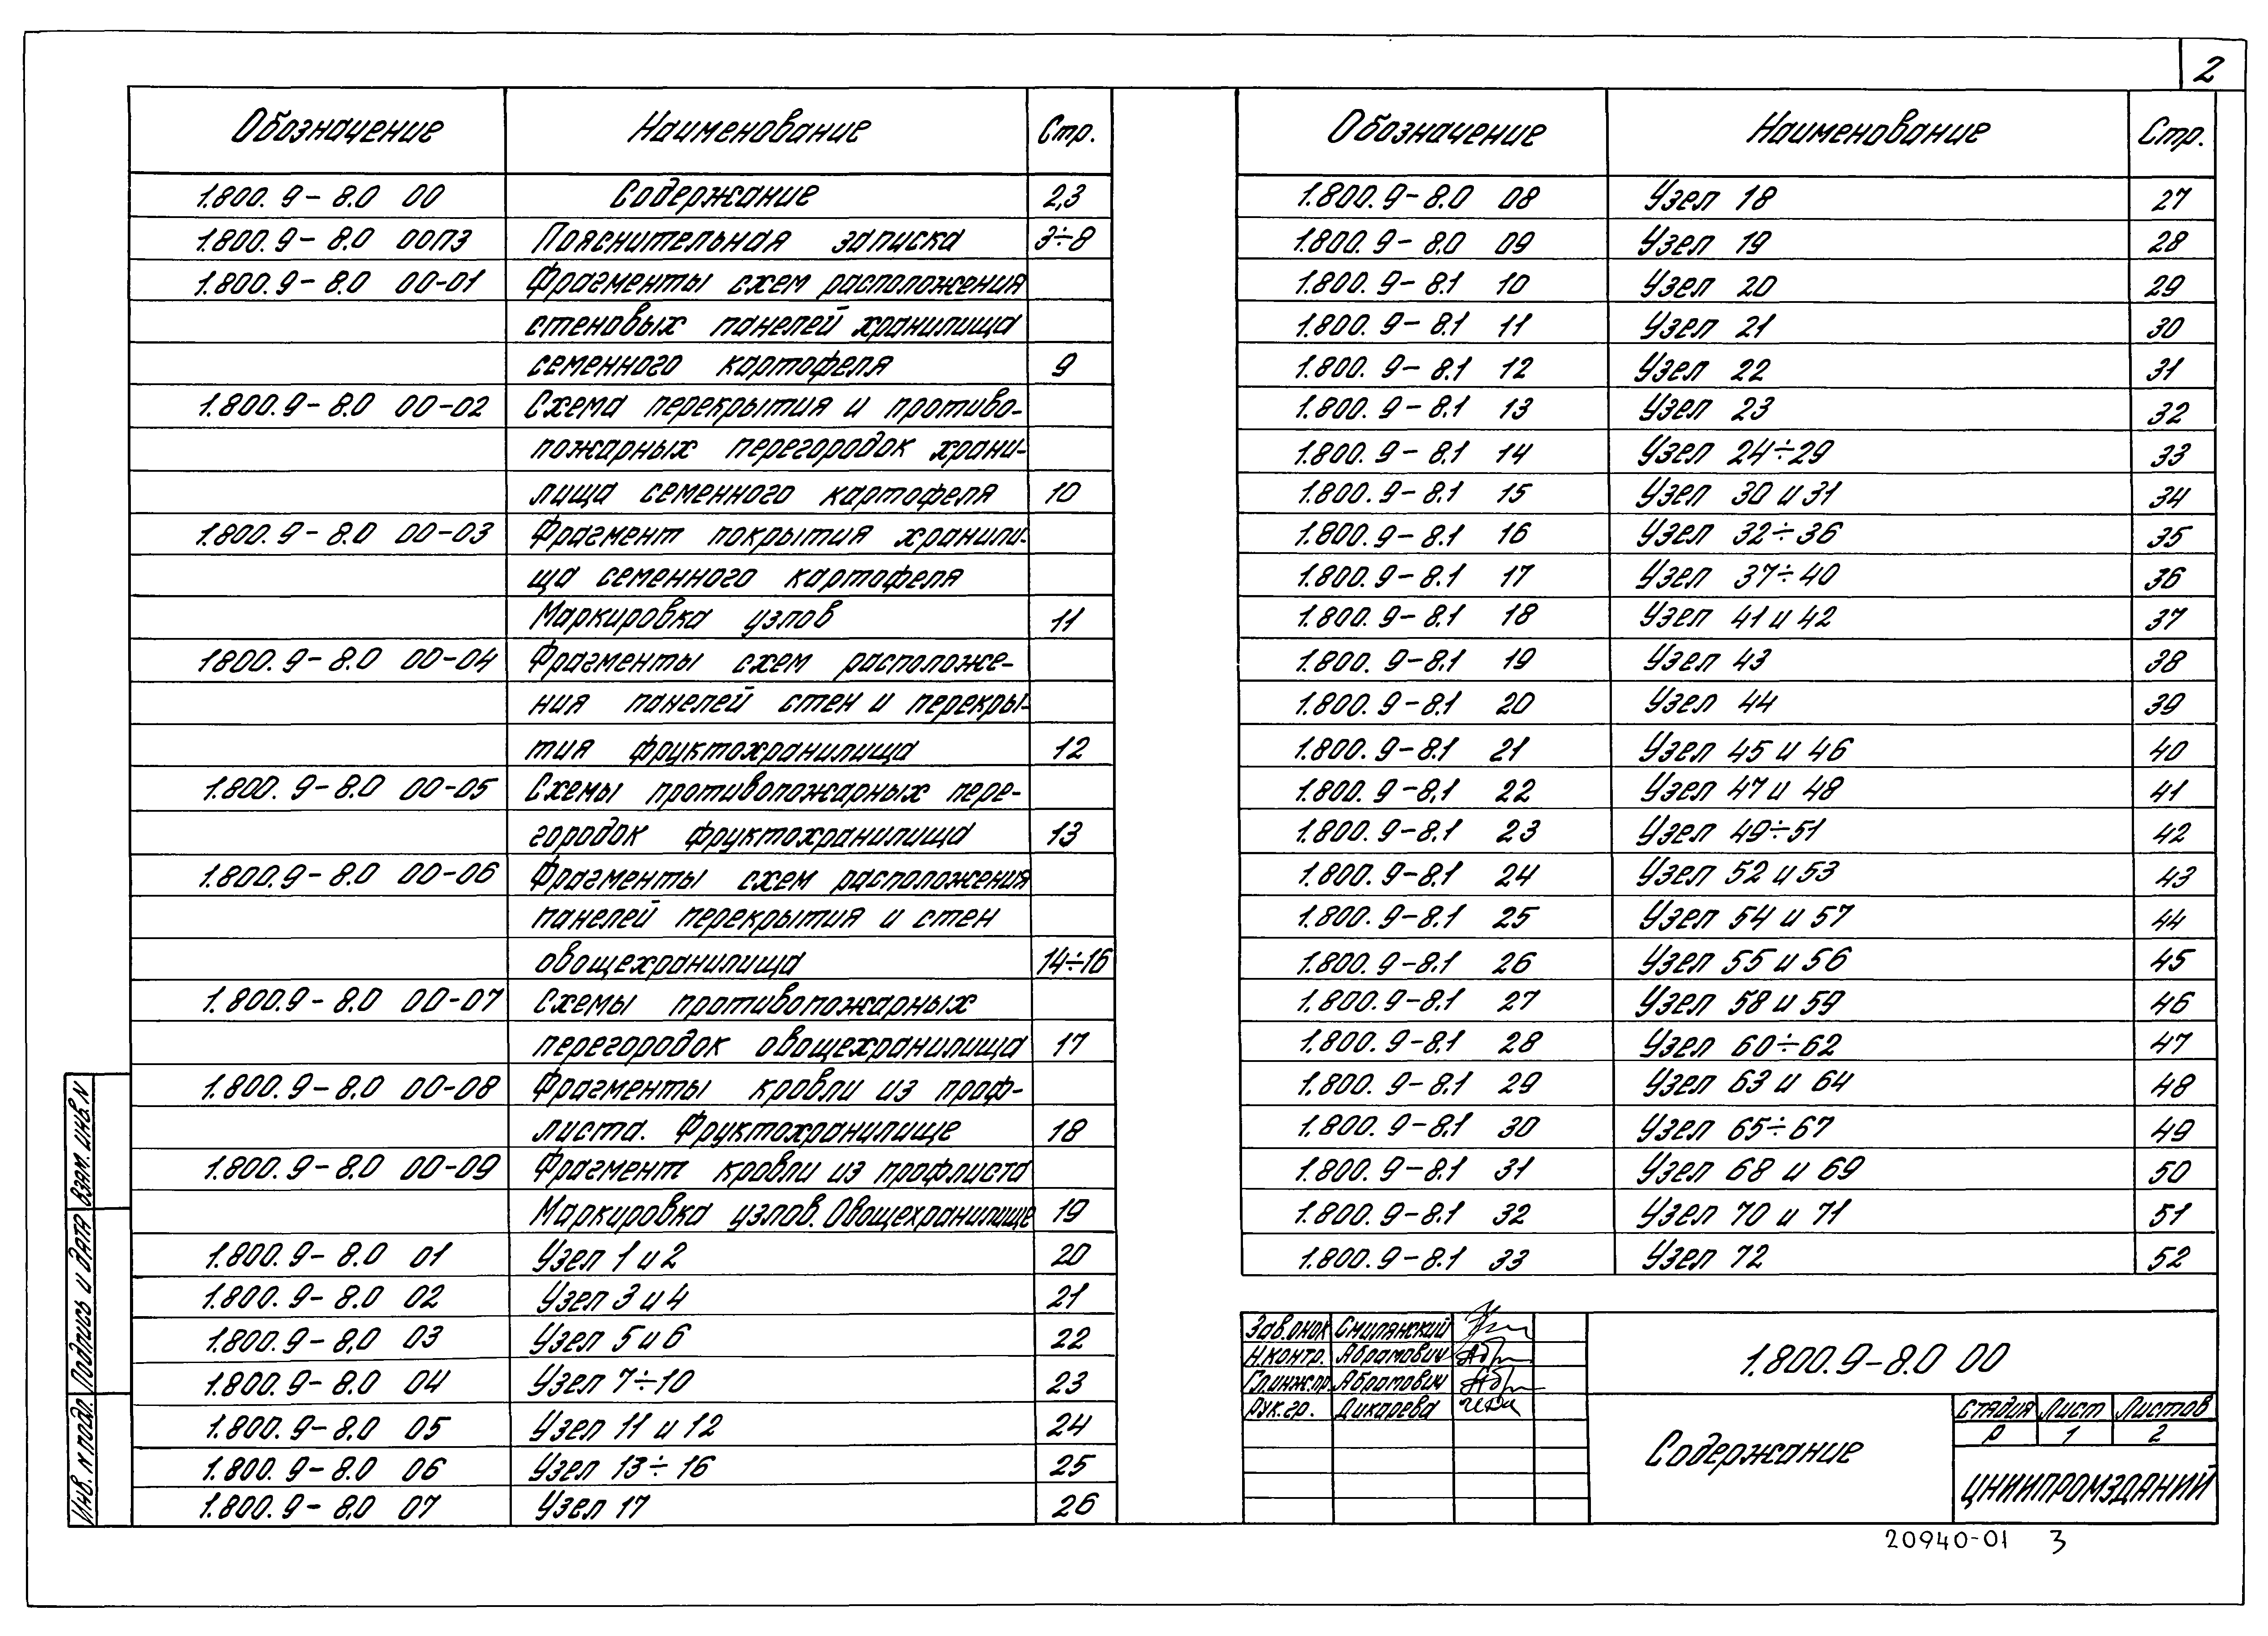 2
Обозначение Наименование Стр.
1.800.9-8.0 00 Содержание 2,3
1.800.9-8.0 00ПЗ Пояснительная записка 3÷8
1.800.9-8.0 00-01 Фрагменты схем расположения
стеновых панелей хранилища
семенного картофеля 9
1.800.9-8.0 00-02 Схема перекрытия и противо-
пожарных перегородок храни-
лища семенного картофеля 10
1.800.9-8.0 00-03 Фрагмент покрытия хранили-
ща семенного картофеля
Маркировка узлов 11
1800.9-8.0 00-04 Фрагменты схем расположе-
ния панелей стен и перекры-
тия фруктохранилища 12
1.800.9-8.0 00-05 Схемы противопожарных пере-
городок фруктохранилища 13
1.800.9-8.0 00-06 Фрагменты схем расположения
панелей перекрытия и стен
овощехранилища 14÷16
1.800.9-8.0 00-07 Схемы противопожарных
перегородок овощехранилища 17
1.800.9-8.0 00-08 Фрагменты кровли из проф-
листа. Фруктохранилище 18
1.800.9-8.0 00-09 Фрагмент кровли из профлиста
Маркировка узлов. Овощехранилище 19
1.800.9-8.0 01 Узел 1 и 2 20
1.800.9-8.0 02 Узел 3 и 4 21
1.800.9-8.0 03 Узел 5 и 6 22
1.800.9-8.0 04 Узел 7÷10 23
1.800.9-8.0 05 Узел 11 и 12 24
1.800.9-8.0 06 Узел 13÷16 25
1.800.9-8.0 07 Узел 17 26
Обозначение Наименование Стр.
1.800.9-8.0 08 Узел 18 27
1.800.9-8.0 09 Узел 19 28
1.800.9-8.1 10 Узел 20 29
1.800.9-8.1 11 Узел 21 30
1.800.9-8.1 12 Узел 22 31
1.800.9-8.1 13 Узел 23 32
1.800.9-8.1 14 Узел 24÷29 33
1.800.9-8.1 15 Узел 30 и 31 34
1.800.9-8.1 16 Узел 32÷36 35
1.800.9-8.1 17 Узел 37÷40 36
1.800.9-8.1 18 Узел 41 и 42 37
1.800.9-8.1 19 Узел 43 38
1.800.9-8.1 20 Узел 44 39
1.800.9-8.1 21 Узел 45 и 46 40
1.800.9-8.1 22 Узел 47 и 48 41
1.800.9-8.1 23 Узел 49÷51 42
1.800.9-8.1 24 Узел 52 и 53 43
1.800.9-8.1 25 Узел 54 и 57 44
1.800.9-8.1 26 Узел 55 и 56 45
1.800.9-8.1 27 Узел 58 и 59 46
1.800.9-8.1 28 Узел 60÷62 47
1.800.9-8.1 29 Узел 63 и 64 48
1.800.9-8.1 30 Узел 65÷67 49
1.800.9-8.1 31 Узел 68 и 69 50
1.800.9-8.1 32 Узел 70 и 71 51
1.800.9-8.1 33 Узел 72 52
Зав.онок Смилянский
Н.контр. Абрамович
Гл.инж.пр. Абрамович
Рук.гр. Дикарева
1.800.9-8.0 00
Содержание
Стадия Лист Листов
Р 1 2
ЦНИИПРОМЗДАНИЙ
20940-01 3
Взам. инв. N
Подпись и дата
Инв. N подл.